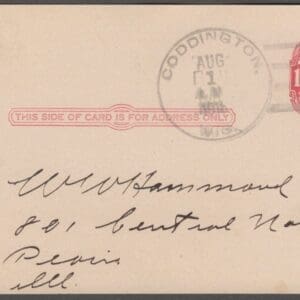 CODDINGTON.
AUG
1
A.M.
WIS.
1
THIS SIDE OF CARD IS FOR ADDRESS ONLY
W W Hammond
801 Central Na
Peoria
Ill.